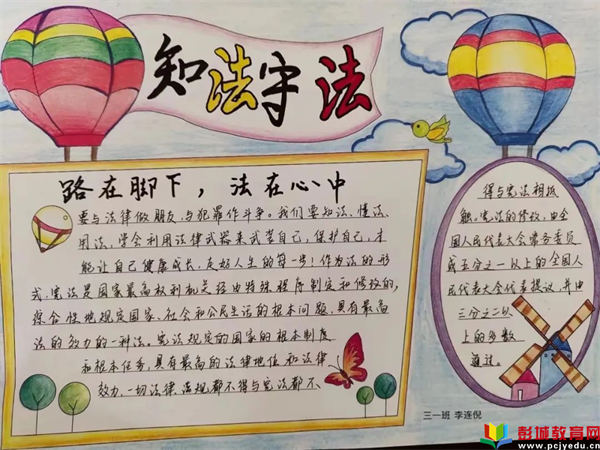 知法守法
路在脚下，法在心中
要与法律做朋友，与犯罪作斗争。我们要知法、懂法、
用法，学会利用法律武器来武装自己，保护自己，才
能让自己健康成长，走好人生的每一步！作为法的形
式，宪法是国家最高权利机关经由特殊程序制定和修改的，
综合性地规定国家、社会和公民生活的根本问题，具有最高
法的效力的一种法。宪法规定的国家的根本制度
和根本任务，具有最高的法律地位和法律
效力，一切法律、法规都不得与宪法都不
得与宪法相抵
触。宪法的修改，由全
国人民代表大会常务委员
或五分之一以上的全国人
民代表大会代表提议，并由
三分之二以
上的多数
通过。
三一班 李连倪
彭城教育网
www.pcjyedu.cn